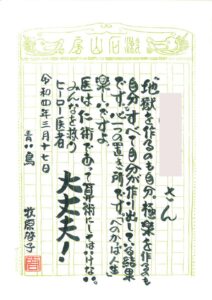 漱石山房
さん
地獄を作るのも自分。極楽を作るも
自分。すべて自分が作り出している結果
です。心一つの置き所です。へのかっぱ人生
楽しいですよ。
医は仁術であって算術にしてはいけない。
大丈夫！
みんなを救う
ヒーロー医者
令和四年三月十七日
青い鳥